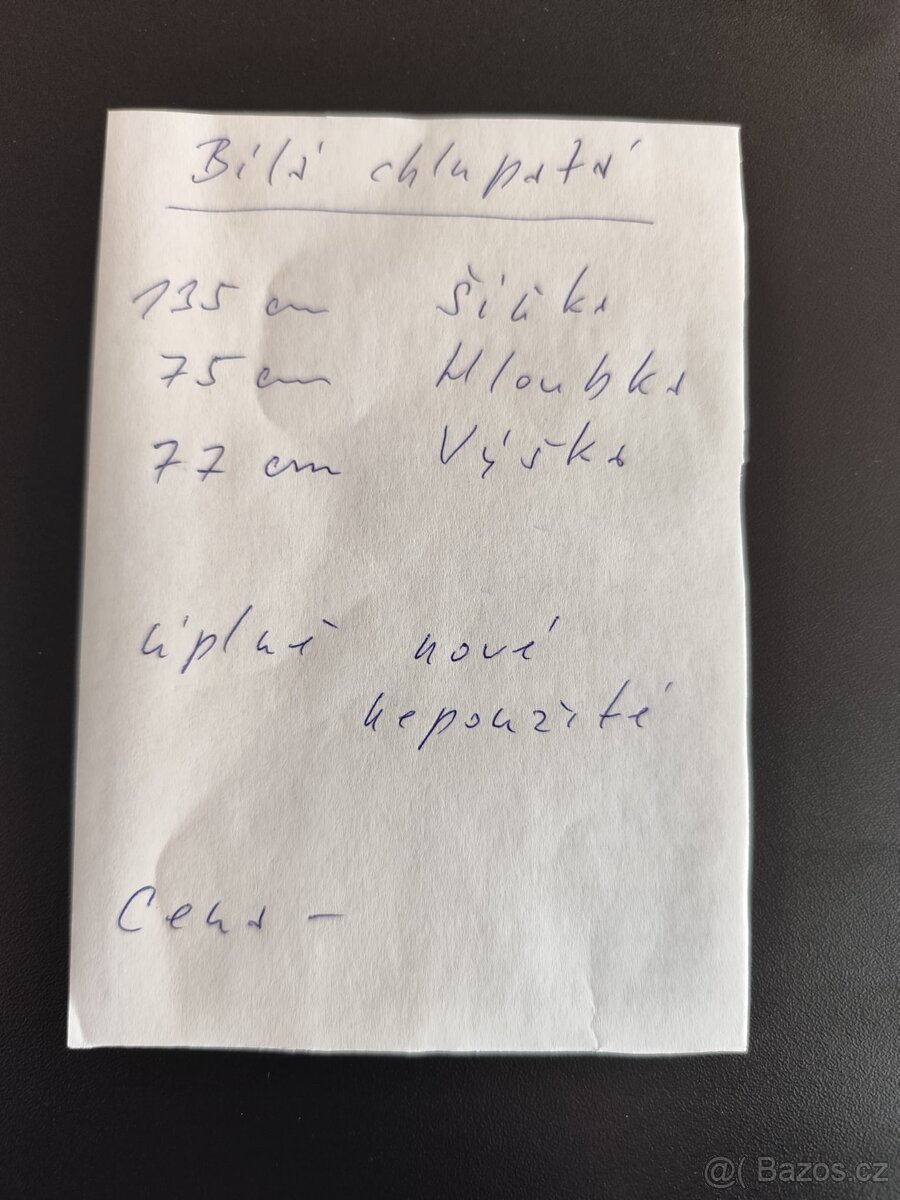 Bílá chlupatá
135 cm Šířka
75 cm Hloubka
77 cm Výška
úplně nové
nepoužité
Cena -
@( Bazos.cz